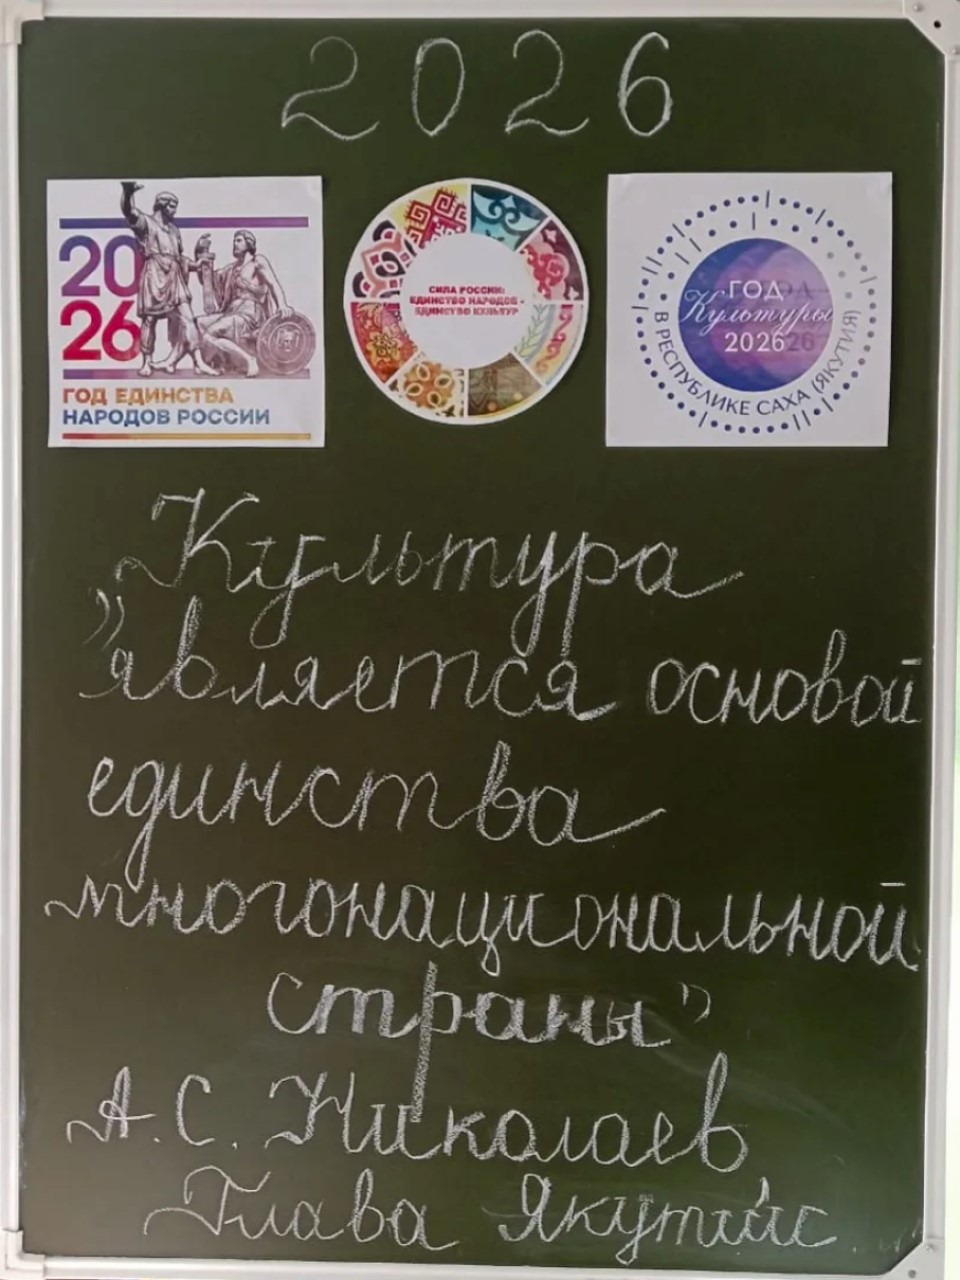 2026
20
26
ГОД ЕДИНСТВА
НАРОДОВ РОССИИ
СИЛА РОССИИ:
ЕДИНСТВО НАРОДОВ -
ЕДИНСТВО КУЛЬТУР
ГОД
Культуры
2026
В РЕСПУБЛИКЕ САХА (ЯКУТИЯ)
Культура
"является основой
единства
многонациональной
страны"
А.С. Николаев
Глава Якутии